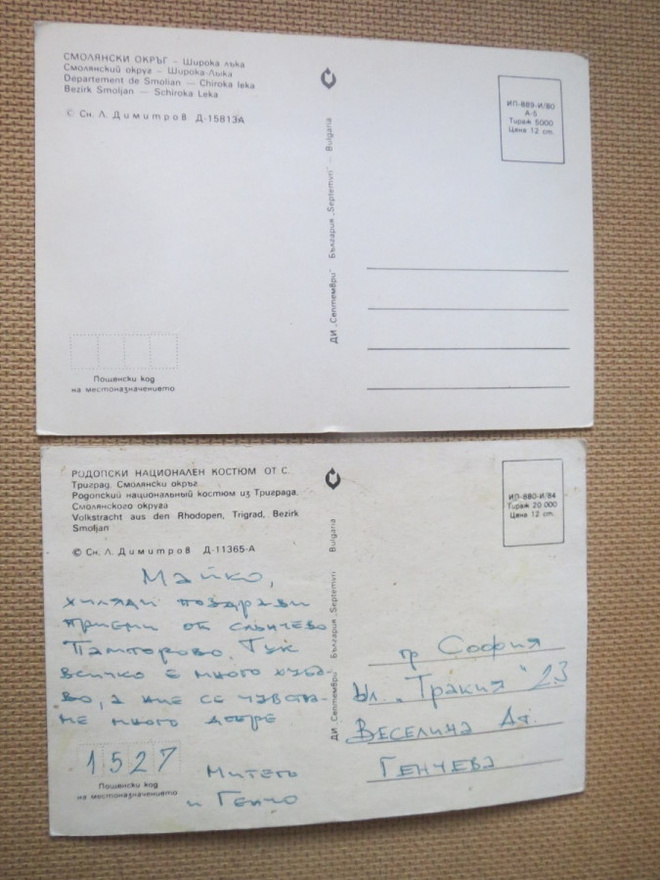 СМОЛЯНСКИ ОКРЪГ – Широка лъка
Смолянский округ – Широка-Лыка
Departement de Smolian — Chiroka leka
Bezirk Smoljan — Schiroka Leka
© Сн. Л. Димитров Д-15813А
ИП-889-И/80
А-6
Тираж 5000
Цена 12 ст.
ДИ „Септември" България „Septemvri" – Bulgaria
Пощенски код
на местоназначението
РОДОПСКИ НАЦИОНАЛЕН КОСТЮМ ОТ С.
Триград, Смолянски окръг
Родопский национальный костюм из Триграда,
Смолянского округа
Volkstracht aus den Rhodopen, Trigrad, Bezirk
Smoljan
© Сн. Л. Димитров Д-11365-А
ИП-880-И/84
Тираж 20 000
Цена 12 ст.
ДИ „Септември" България „Septemvri" Bulgaria
Майко,
хиляди поздрави
приеми от слънчево
Пампорово Тук
всичко е много хуба-
во, а ние се чувства-
ме много добре
1527
Митето
и Генчо
Пощенски код
на местоназначението
гр София
Ул. „Тракия" 23
Веселина Ат.
Генчева